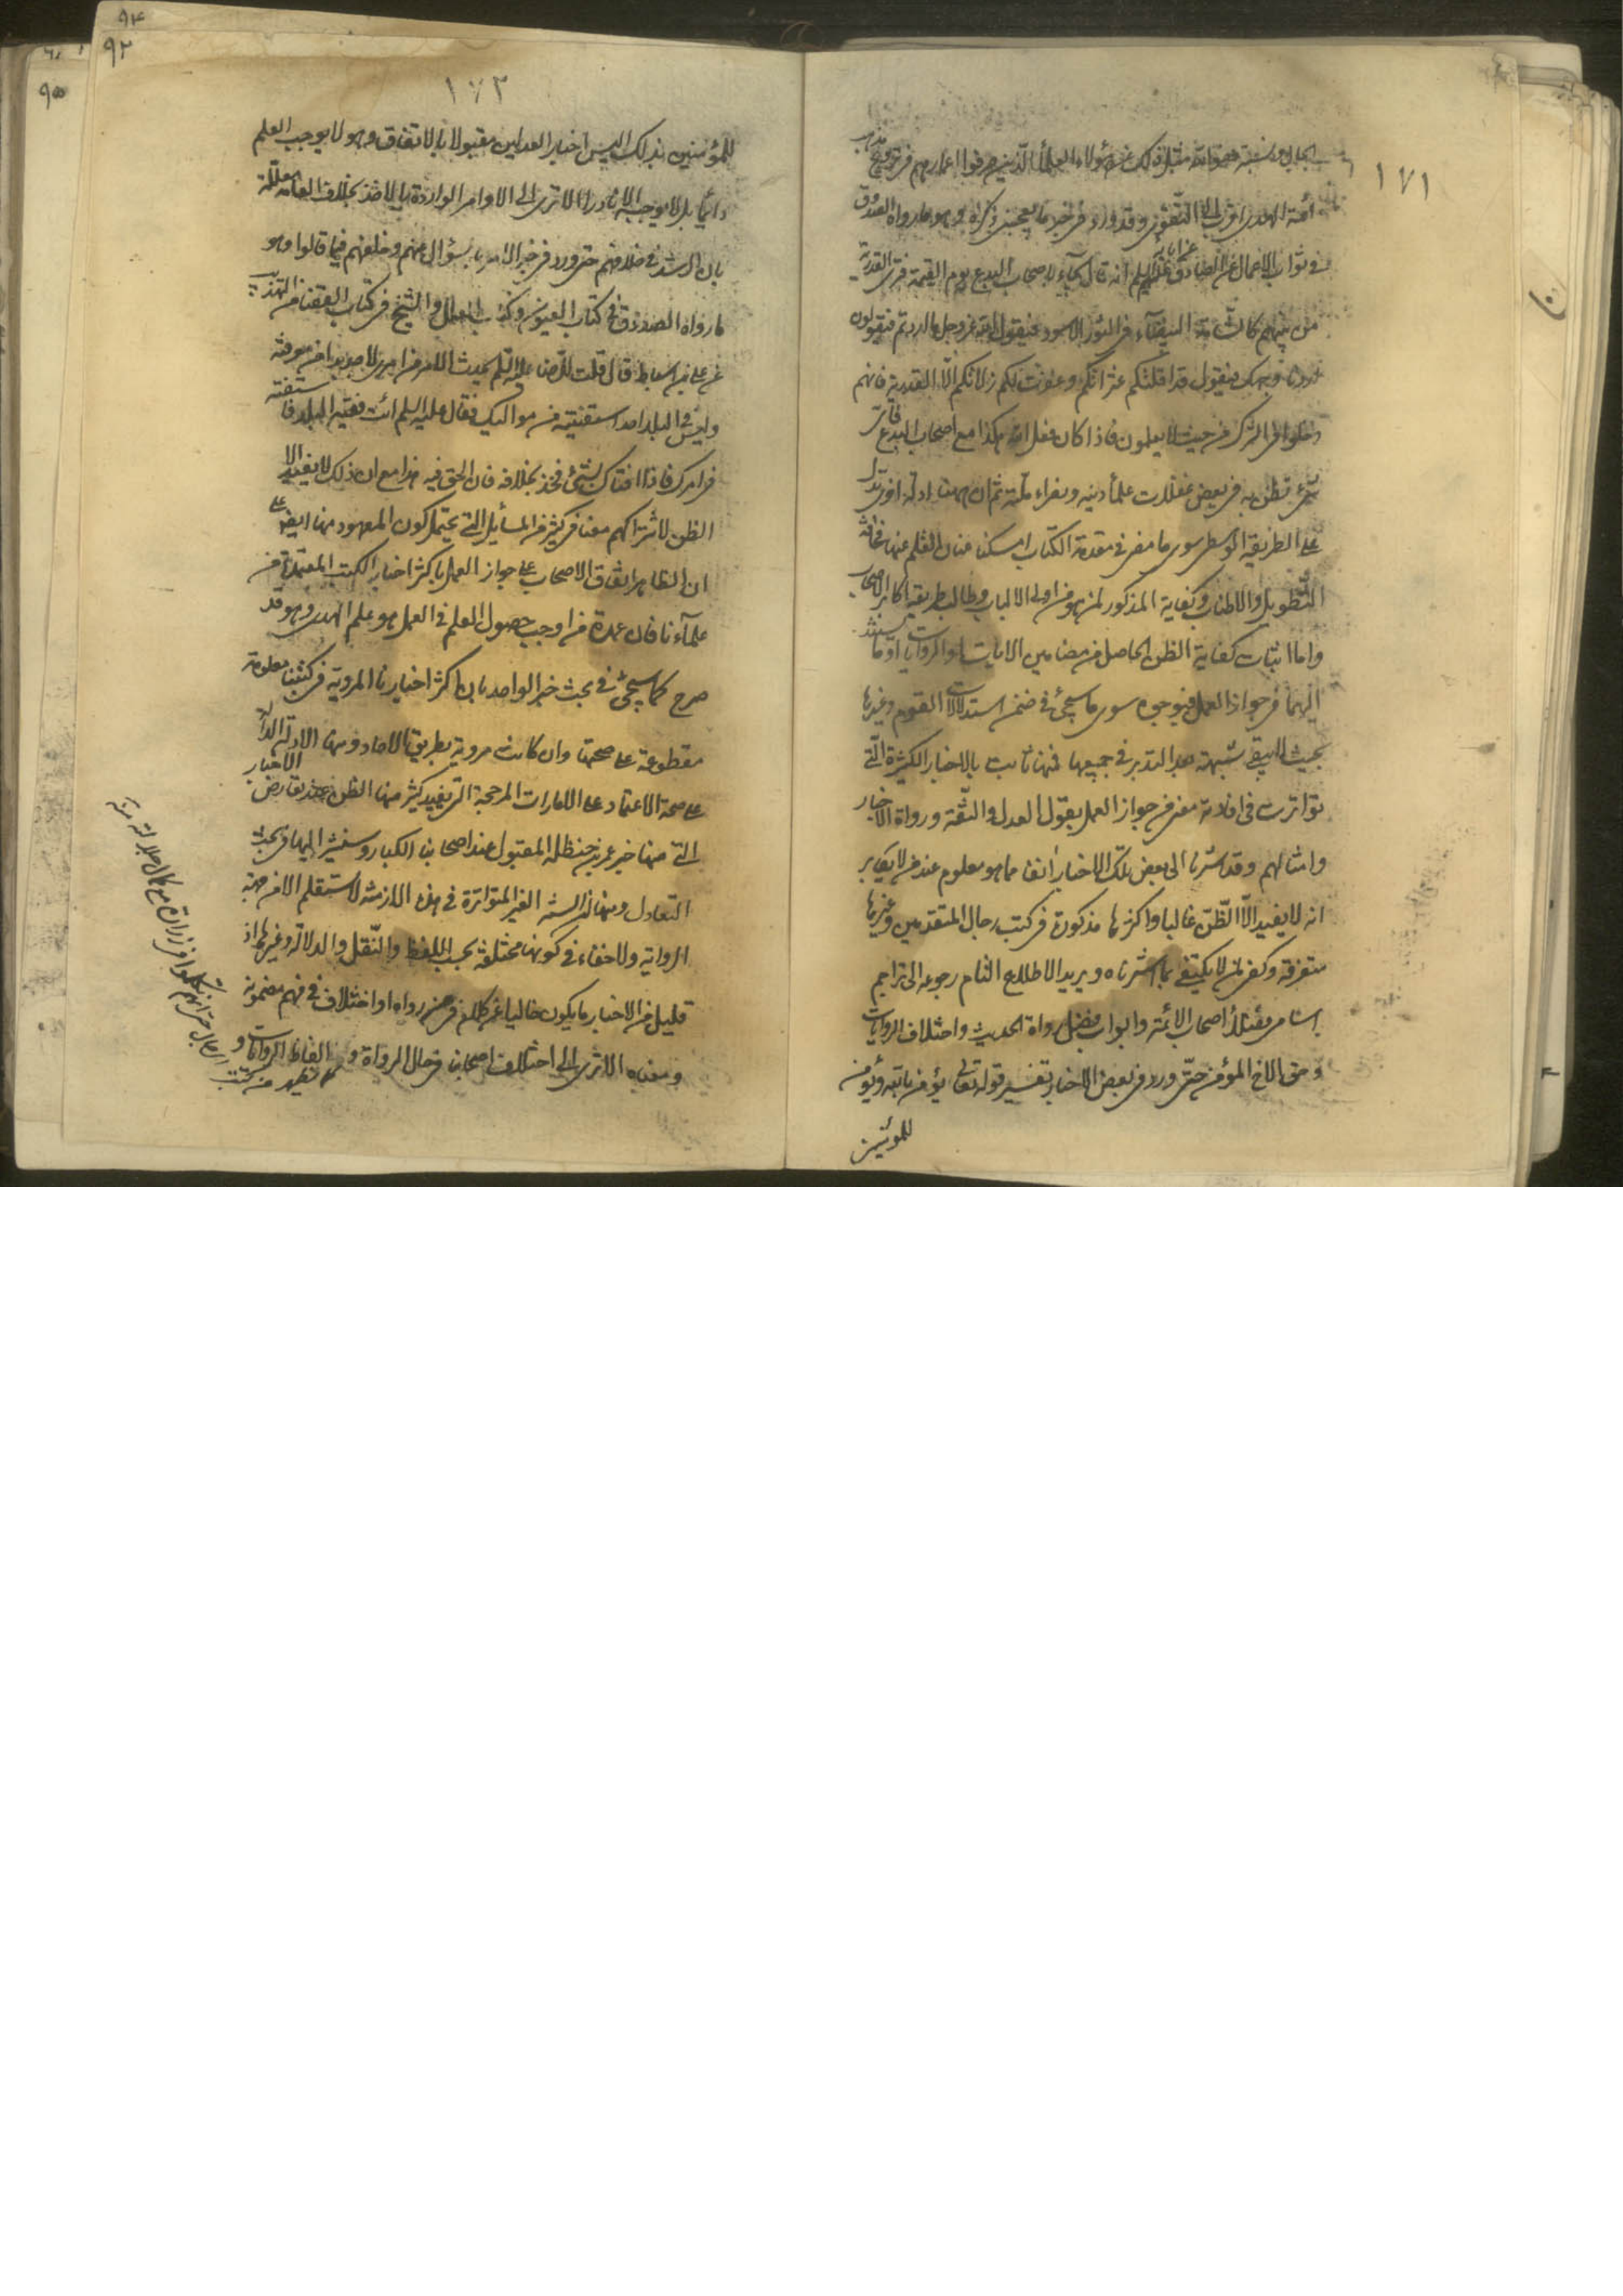 ١٧١
الجهال ونسبة
أئمة الهدى اقرب الى التقوى وقد ورد في خبر ما يعجبني ذكره وهو ما رواه الصدوق
في ثواب الاعمال عن الصادق عليه السلم انه قال يجاء باصحاب البدع يوم القيمة فترى القدرية
من بينهم كالشامة البيضاء في الثور الاسود فيقول الله عز وجل ما اردتم فيقولون
اردنا وجهك فيقول قد اقلتكم عثراتكم وغفرت لكم زلاتكم الا القدرية فانهم
دخلوا في الشرك من حيث لا يعلمون فاذا كان فعل الله هكذا مع اصحاب البدع
على الطريقة الوسطى سوى ما مضى في مقدمة الكتاب امسكنا عنان القلم عنها مخافة
التطويل والاطناب وكفاية المذكور لمن هو من اولى الالباب وطالب طريقة اكابر الاصحاب
واما اثبات كفاية الظن الحاصل من مضامين الايات او الروايات او ما يستند
اليهما في جواز العمل فبوجوه سوى ما سيجئ في ضمن استدلالات القوم وغيرها
بحيث لا يبقى شبهة بعد التدبر في جميعها فمنها ثابت بالاخبار الكثيرة التي
تواترت في افادة معنى من جواز العمل بقول العدل والثقة ورواة الاخبار
وامثالهم وقد اشرنا الى بعض تلك الاخبار انفا مما هو معلوم عند من لا يكابر
انه لا يفيد الا الظن غالبا واكثرها مذكورة في كتب رجال المتقدمين وغيرها
متفرقة وكفى لمن لا يكتفي بما اشرناه ويريد الاطلاع التام رجوعه الى تراجم
اصحاب الائمة وابواب فضل رواة الحديث واختلاف الروايات
وحق الاخ المؤمن حتى ورد في بعض الاخبار تفسير قوله تعالى يؤمن بالله ويؤمن
للمؤمنين
١٧٢
للمؤمنين بذلك اليس اخبار العدلين مقبولا بالاتفاق وهو لا يوجب العلم
دائما بل لا يوجبه الا نادرا الا ترى الى الاوامر الواردة بالاخذ بخلاف العامة معللة
بان الرشد في خلافهم حتى ورد في خبر الامر بسؤال منهم وخلفهم فيما قالوا وهو
ما رواه الصدوق في كتاب العيون وكتاب العلل والشيخ في كتاب القضا من التهذيب
عن علي بن اسباط قال قلت للرضا عليه السلم يحدث الامر من امري لا اجد بدا من معرفته
وليس في البلد احد استفتيه من مواليك فقال عليه السلم ائت فقيه البلد فاستفته
في امرك فاذا افتاك بشئ فخذ بخلافه فان الحق فيه هذا مع ان ذلك لا يفيد الا
الظن لاشتراكهم معنا في كثير من المسائل التي يحتمل كون المعهود منها ايضا على
ان الظاهر اتفاق الاصحاب على جواز العمل باكثر اخبار الكتب المعتمدة من
علماءنا فان عمدة من اوجب حصول العلم في العمل هو علم الهدى وهو قد
صرح كما سيجئ في بحث خبر الواحد بان اكثر اخبارنا المروية في كتبنا معلومة
مقطوعة على صحتها وان كانت مروية بطريق الاحاد ومنها الادلة الدالة
على صحة الاعتماد على الامارات المرجحة التي يفيد كثير منها الظن عند تعارض الاخبار
التي منها خبر عمر بن حنظلة المقبول عند اصحابنا الكبار وسنشير اليها في بحث
التعادل ومنها ان السنة الغير المتواترة في هذه الازمنة لا ستعلم الا من جهة
الرواية ولا خفاء في كونها مختلفة بحسب اللفظ والنقل والدلالة وغيرها اذ
قليل من الاخبار ما يكون خاليا عن كلام في رواه او اختلاف في فهم مضمونه
ومعناه الا ترى الى اختلاف اصحابنا في حال الرواة و الفاظ الروايات و